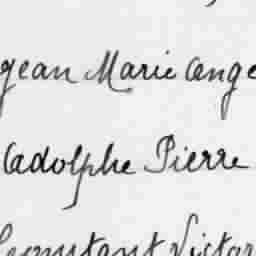 Jean Marie Ange
Adolphe Pierre
Constant Victor